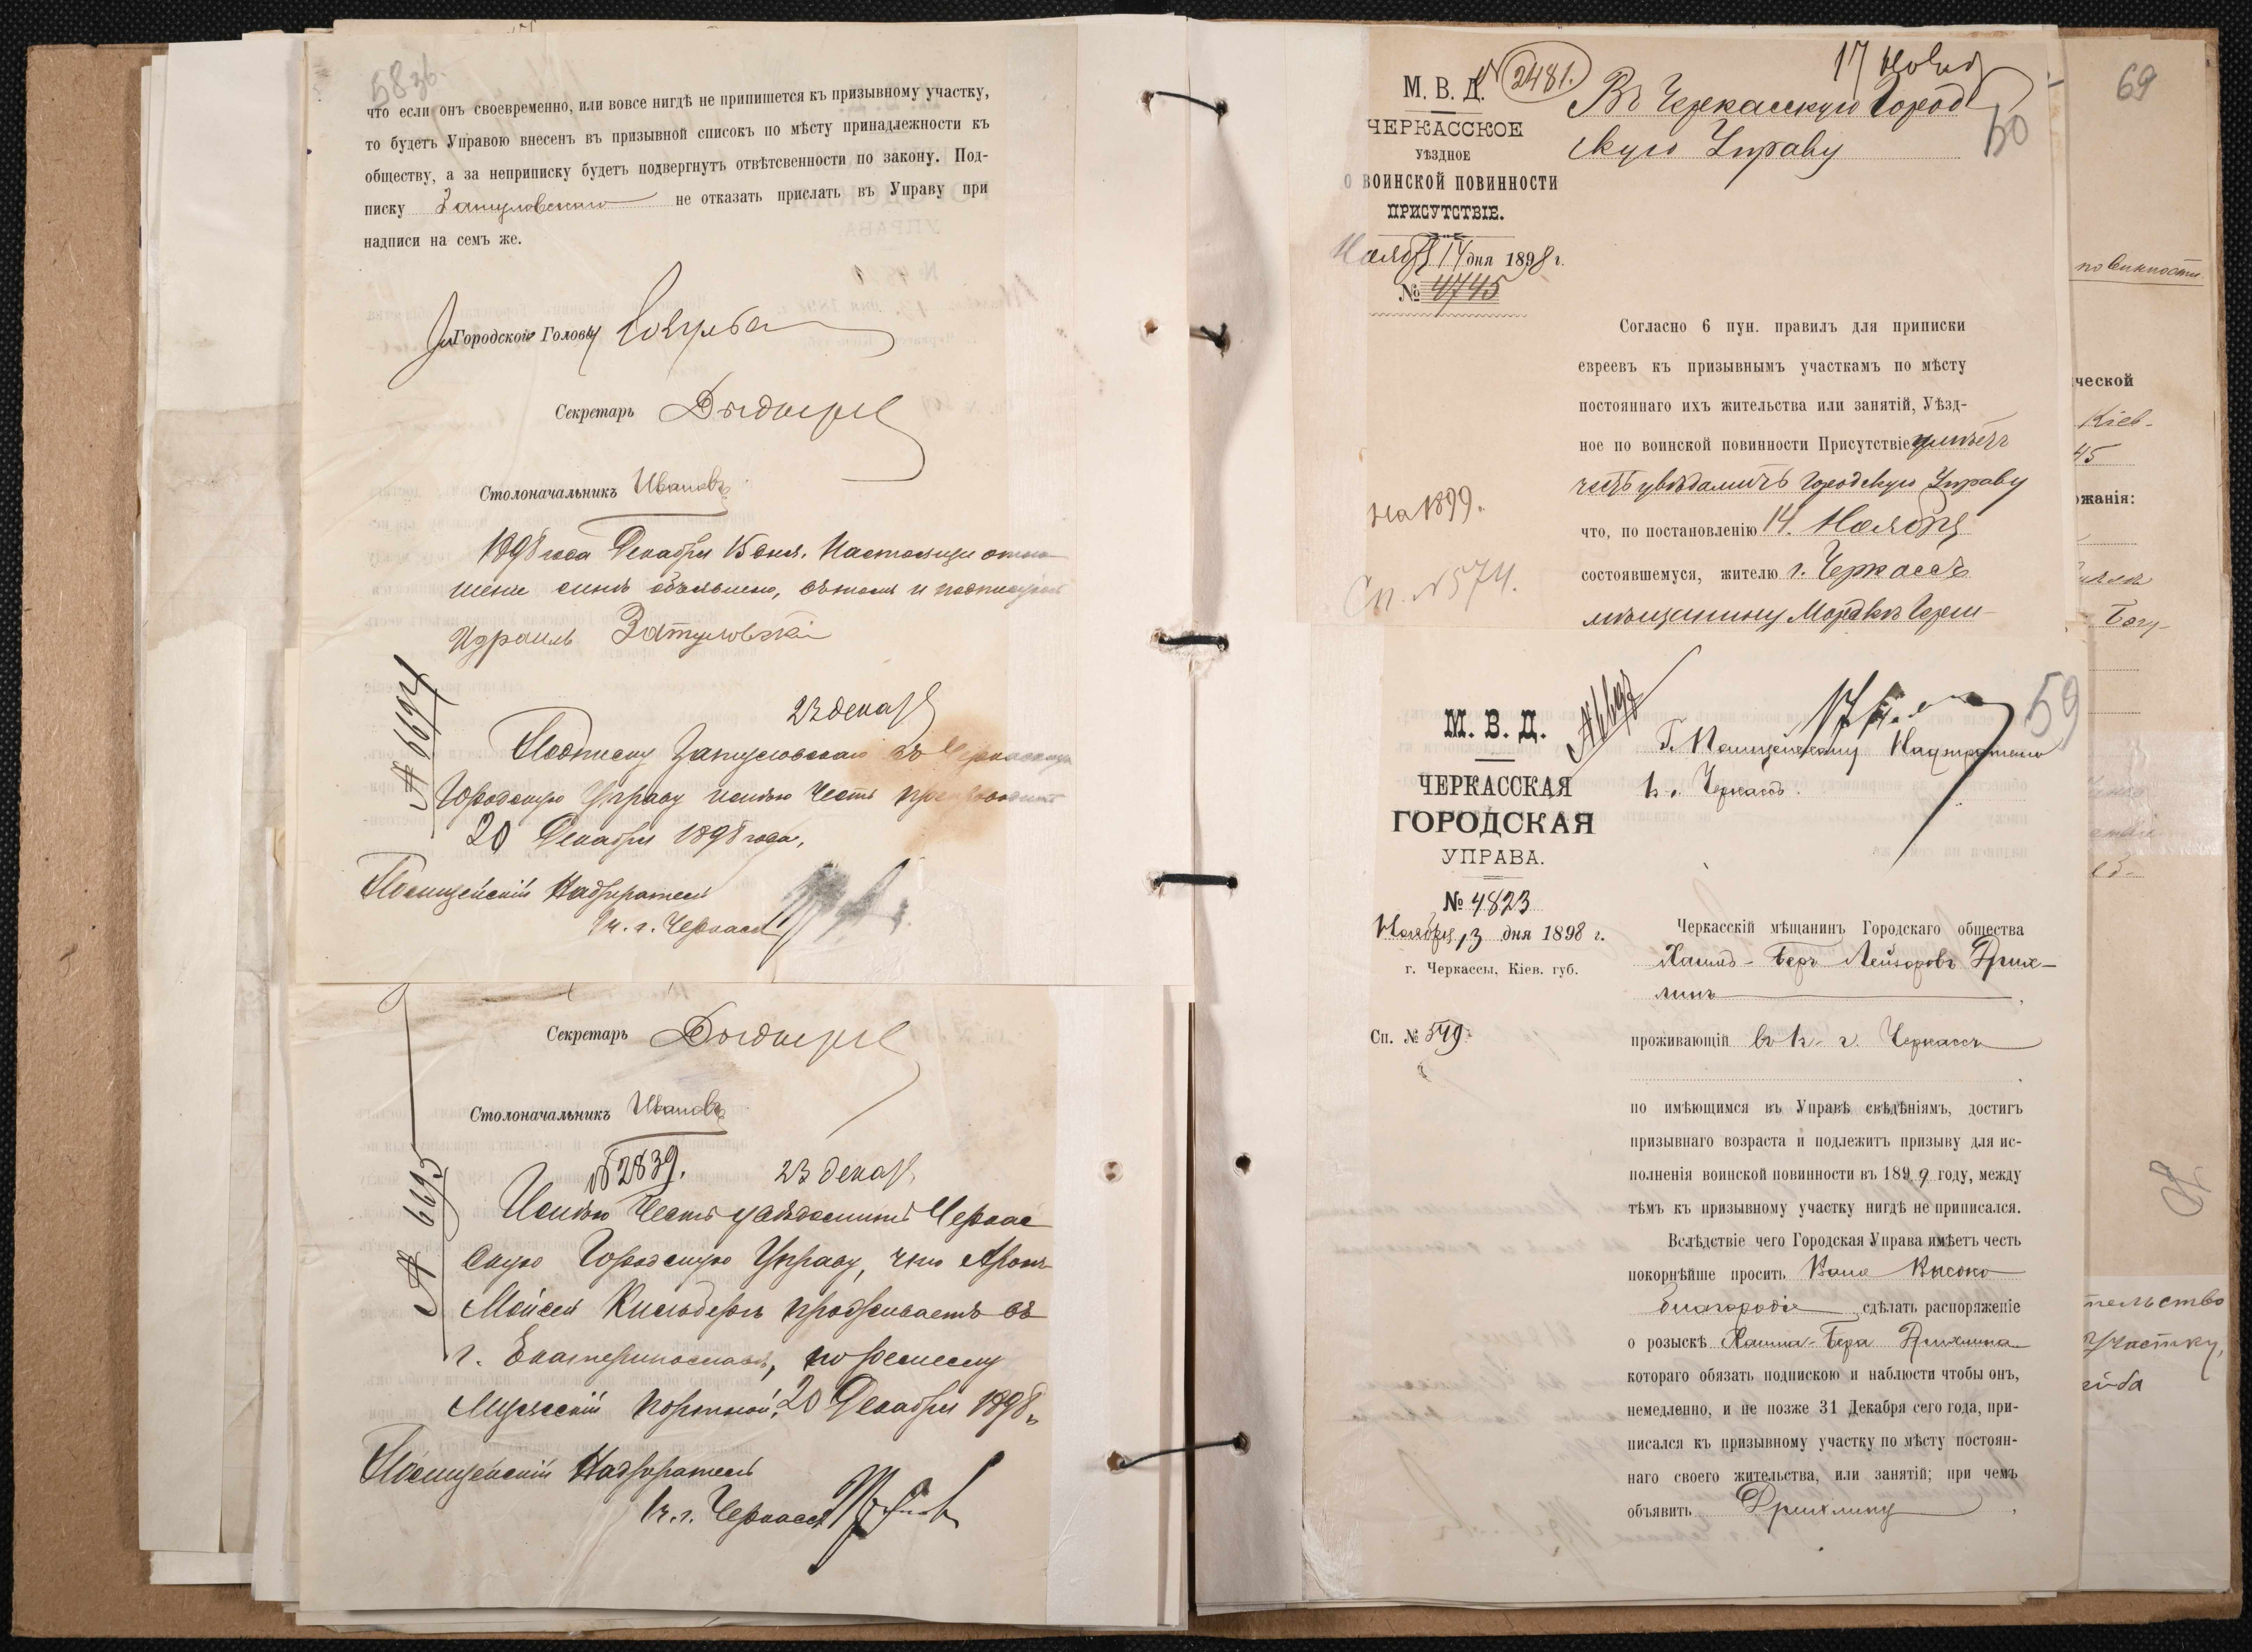 58 зв.
что если онъ своевременно, или вовсе нигдѣ не припишется къ призывному участку,
то будетъ Управою внесенъ въ призывной списокъ по мѣсту принадлежности къ
обществу, а за неприписку будетъ подвергнутъ отвѣтсвенности по закону. Под-
писку Затуловскаго не отказать прислать въ Управу при
надписи на семъ же.
Городской Голова
Секретарь
Столоначальникъ Ивановъ
1898 года Декабря 15 дня. Настоящее отно
шеніе мнѣ объявлено, въ томъ и подписуюсь
Израиль Затуловскі
№ 6694
23 декаб
Подписку Затуловскаго въ Черкасскую
Городскую Управу имѣю честь препроводить
20 Декабря 1898 года,
Полицейскій Надзиратель
1ч. г. Черкассъ
Секретарь
Столоначальникъ Ивановъ
№ 6695
№ 2839.
23 декаб
Имѣю честь увѣдомить Черкас
скую Городскую Управу, что Аронъ
Мойсей Кисльберъ проживаетъ въ
г. Екатеринославѣ, по ремеслу
Мужескій портной. 20 Декабря 1898 г.
Полицейскій Надзиратель
1ч. г. Черкассъ
М. В. Д.
№ 2481.
17 Нояб
60
ЧЕРКАССКОЕ
УѢЗДНОЕ
О ВОИНСКОЙ ПОВИННОСТИ
ПРИСУТСТВІЕ.
Ноября 14 дня 1898 г.
№ 4745
Въ Черкасскую Город
скую Управу
Согласно 6 пун. правилъ для приписки
евреевъ къ призывнымъ участкамъ по мѣсту
постояннаго ихъ жительства или занятій, Уѣзд-
ное по воинской повинности Присутствіе имѣетъ
честь увѣдомить Городскую Управу
что, по постановленію 14. Ноября
состоявшемуся, жителю г. Черкассъ
мѣщанину Мордкѣ Герш-
на 1899.
Сп. № 574.
М. В. Д.
ЧЕРКАССКАЯ
ГОРОДСКАЯ
УПРАВА.
№ 4823
Ноября 13 дня 1898 г.
г. Черкассы, Кіев. губ.
Сп. № 549.
59
Г. Полицейскому Надзирателю
1 ч. Черкассъ.
Черкасскій мѣщанинъ Городскаго общества
Хаимъ-Беръ Лейзоровъ Дрих-
линъ
проживающій въ 1 ч. г. Черкассъ
по имѣющимся въ Управѣ свѣдѣніямъ, достигъ
призывнаго возраста и подлежитъ призыву для ис-
полненія воинской повинности въ 1899 году, между
тѣмъ къ призывному участку нигдѣ не приписался.
Вслѣдствіе чего Городская Управа имѣетъ честь
покорнѣйше просить Ваше Высоко
благородіе сдѣлать распоряженіе
о розыскѣ Хаима-Бера Дрихлина
котораго обязать подпискою и наблюсти чтобы онъ,
немедленно, и не позже 31 Декабря сего года, при-
писался къ призывному участку по мѣсту постоян-
наго своего жительства, или занятій; при чемъ
объявить Дрихлину
69
повинности
ческой
Кіев-
45
жанія:
Богу-
тельство
участку,